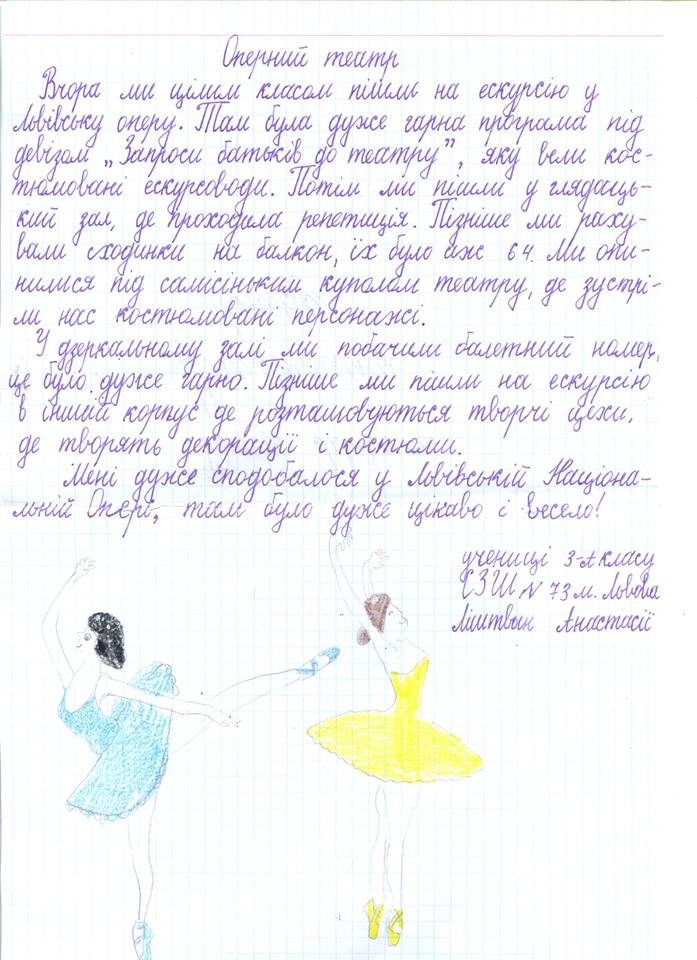 Оперний театр
Вчора ми цілим класом пішли на екскурсію у
Львівську оперу. Там була дуже гарна програма під
девізом „Запроси батьків до театру", яку вели кос-
тюмовані екскурсоводи. Потім ми пішли у глядаць-
кий зал, де проходила репетиція. Пізніше ми раху-
вали сходинки на балкон, їх було аж 64. Ми опи-
нилися під самісіньким куполом театру, де зустрі-
ли нас костюмовані персонажі.
У дзеркальному залі ми побачили балетний номер,
це було дуже гарно. Пізніше ми пішли на екскурсію
в інший корпус де розташовуються творчі цехи,
де творять декорації і костюми.
Мені дуже сподобалося у Львівській Націона-
льній Опері, там було дуже цікаво і весело!
учениці 3-А класу
СЗШ N 73 м. Львова
Ліштван Анастасії